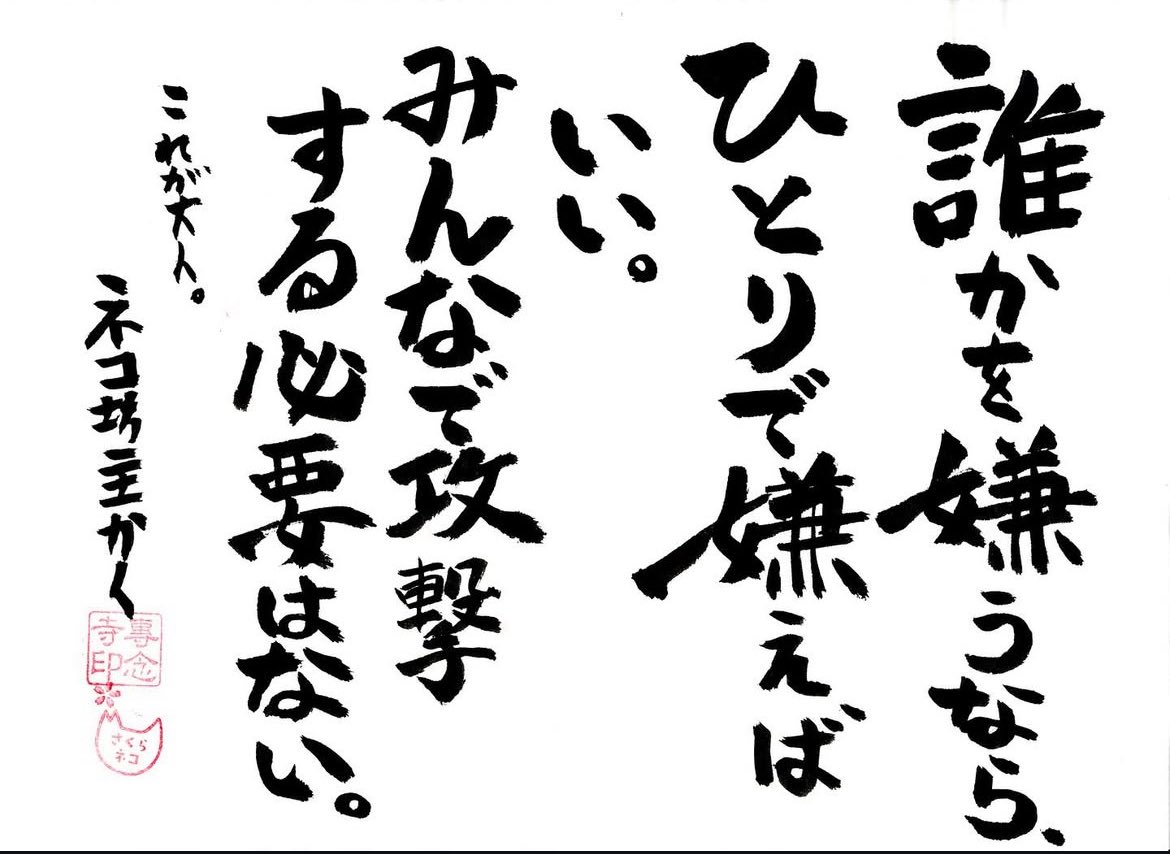 誰かを嫌うなら、
ひとりで嫌えば
いい。
みんなで攻撃
する必要はない。
これが大人。
ネコ坊主かく
専念
寺印
さくら
ネコ